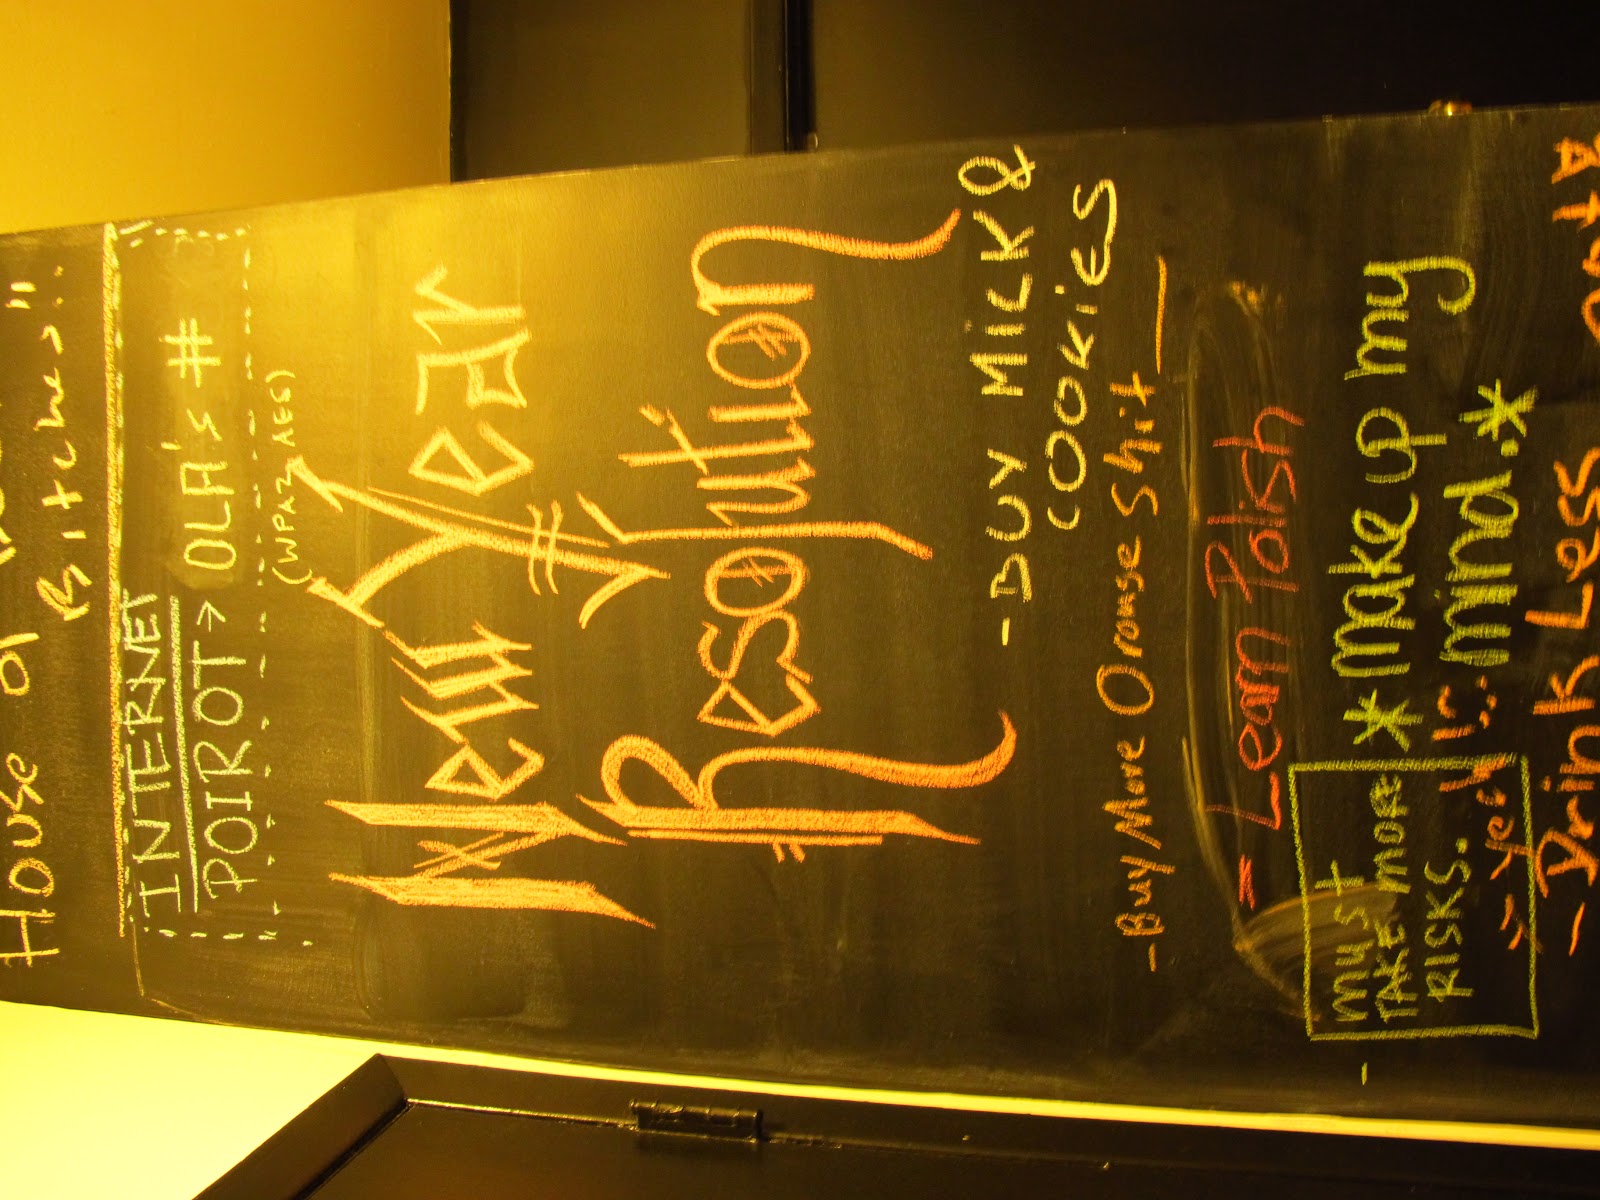 House of
Bitches!!"
INTERNET
POIROT → OLA's #
(WPA2, AES)
New Year
Resolution
- BUY MILK &
COOKIES
- Buy More Orange Shit
= Learn Polish
* make up my
mind. *
- must
TAKE MORE
RISKS.
- Drink Less